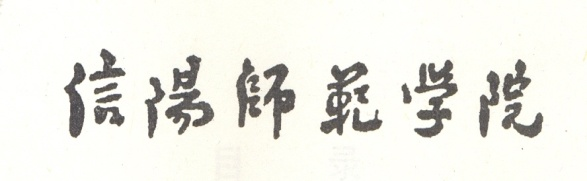 信陽師範学院